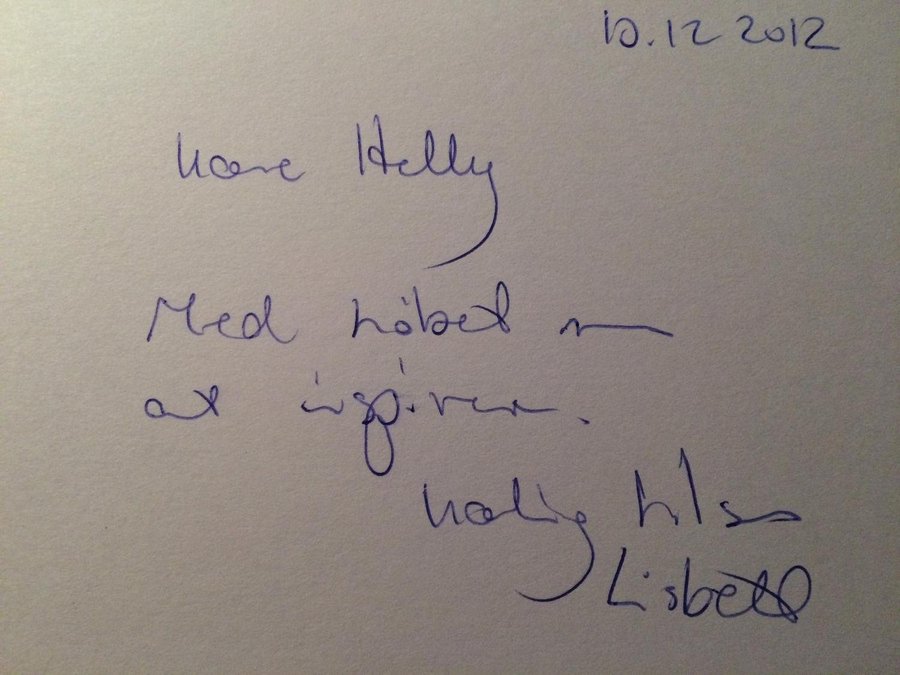 10.12 2012
Kære Helly
Med håbet om
at inspirere.
Kærlig hilsen
Lisbeth